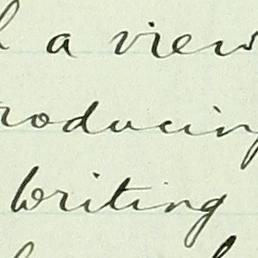 a view
roducing
writing